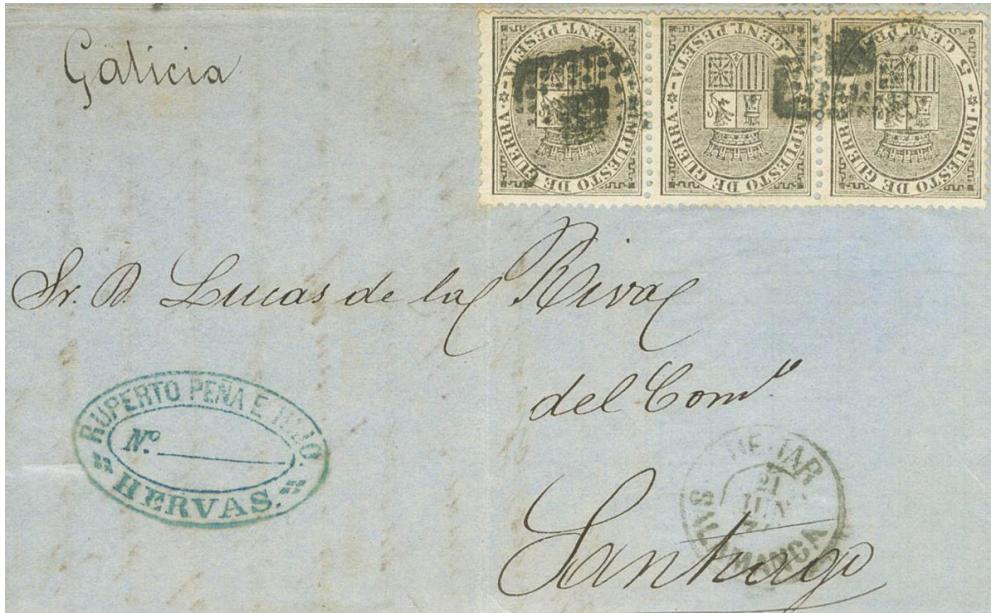 Galicia
5 CENT. PESETA
IMPUESTO DE GUERRA
CENT. PESETA
IMPUESTO DE GUERRA
5 CENT. PE
IMPUESTO DE GUERRA
Sr. D. Lucas de la Riva
del Com.º
Santiago
RUPERTO PEÑA E HIJO.
Nº
HERVAS.
BEJAR
21
JUN
SALAMANCA